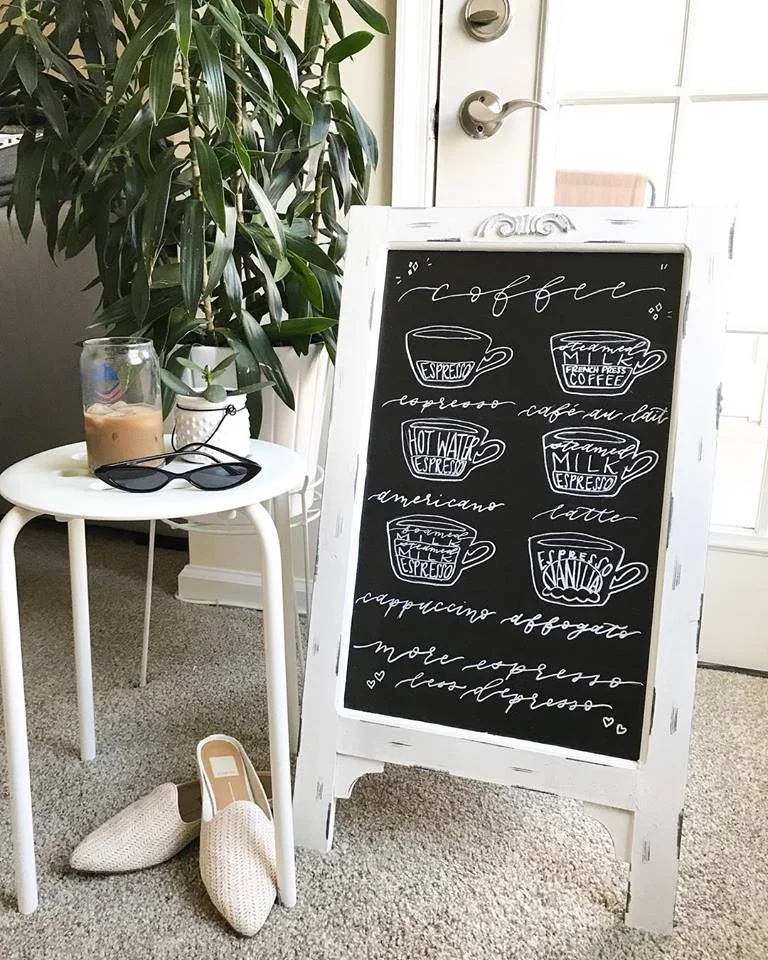 coffee
ESPRESSO
espresso
steamed
MILK
FRENCH PRESS
COFFEE
café au lait
HOT WATER
ESPRESSO
americano
steamed
MILK
ESPRESSO
latte
foamed
MILK
steamed
MILK
ESPRESSO
cappuccino
ESPRESSO
VANILLA
affogato
more espresso
less depresso